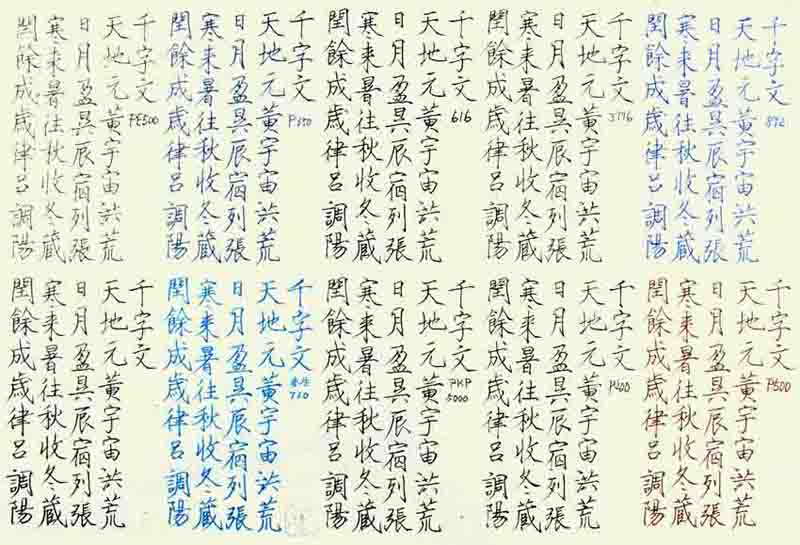 千字文 892
天地元黄宇宙洪荒
日月盈昃辰宿列張
寒来暑往秋收冬藏
閏餘成歳律呂調陽
千字文 3776
天地元黄宇宙洪荒
日月盈昃辰宿列張
寒来暑往秋收冬藏
閏餘成歳律呂調陽
千字文 616
天地元黄宇宙洪荒
日月盈昃辰宿列張
寒来暑往秋收冬藏
閏餘成歳律呂調陽
千字文 P350
天地元黄宇宙洪荒
日月盈昃辰宿列張
寒来暑往秋收冬藏
閏餘成歳律呂調陽
千字文 PE500
天地元黄宇宙洪荒
日月盈昃辰宿列張
寒来暑往秋收冬藏
閏餘成歳律呂調陽
千字文 P500
天地元黄宇宙洪荒
日月盈昃辰宿列張
寒来暑往秋收冬藏
閏餘成歳律呂調陽
千字文 P400
天地元黄宇宙洪荒
日月盈昃辰宿列張
寒来暑往秋收冬藏
閏餘成歳律呂調陽
千字文 PKP 5000
天地元黄宇宙洪荒
日月盈昃辰宿列張
寒来暑往秋收冬藏
閏餘成歳律呂調陽
千字文 710
天地元黄宇宙洪荒
日月盈昃辰宿列張
寒来暑往秋收冬藏
閏餘成歳律呂調陽
千字文
天地元黄宇宙洪荒
日月盈昃辰宿列張
寒来暑往秋收冬藏
閏餘成歳律呂調陽